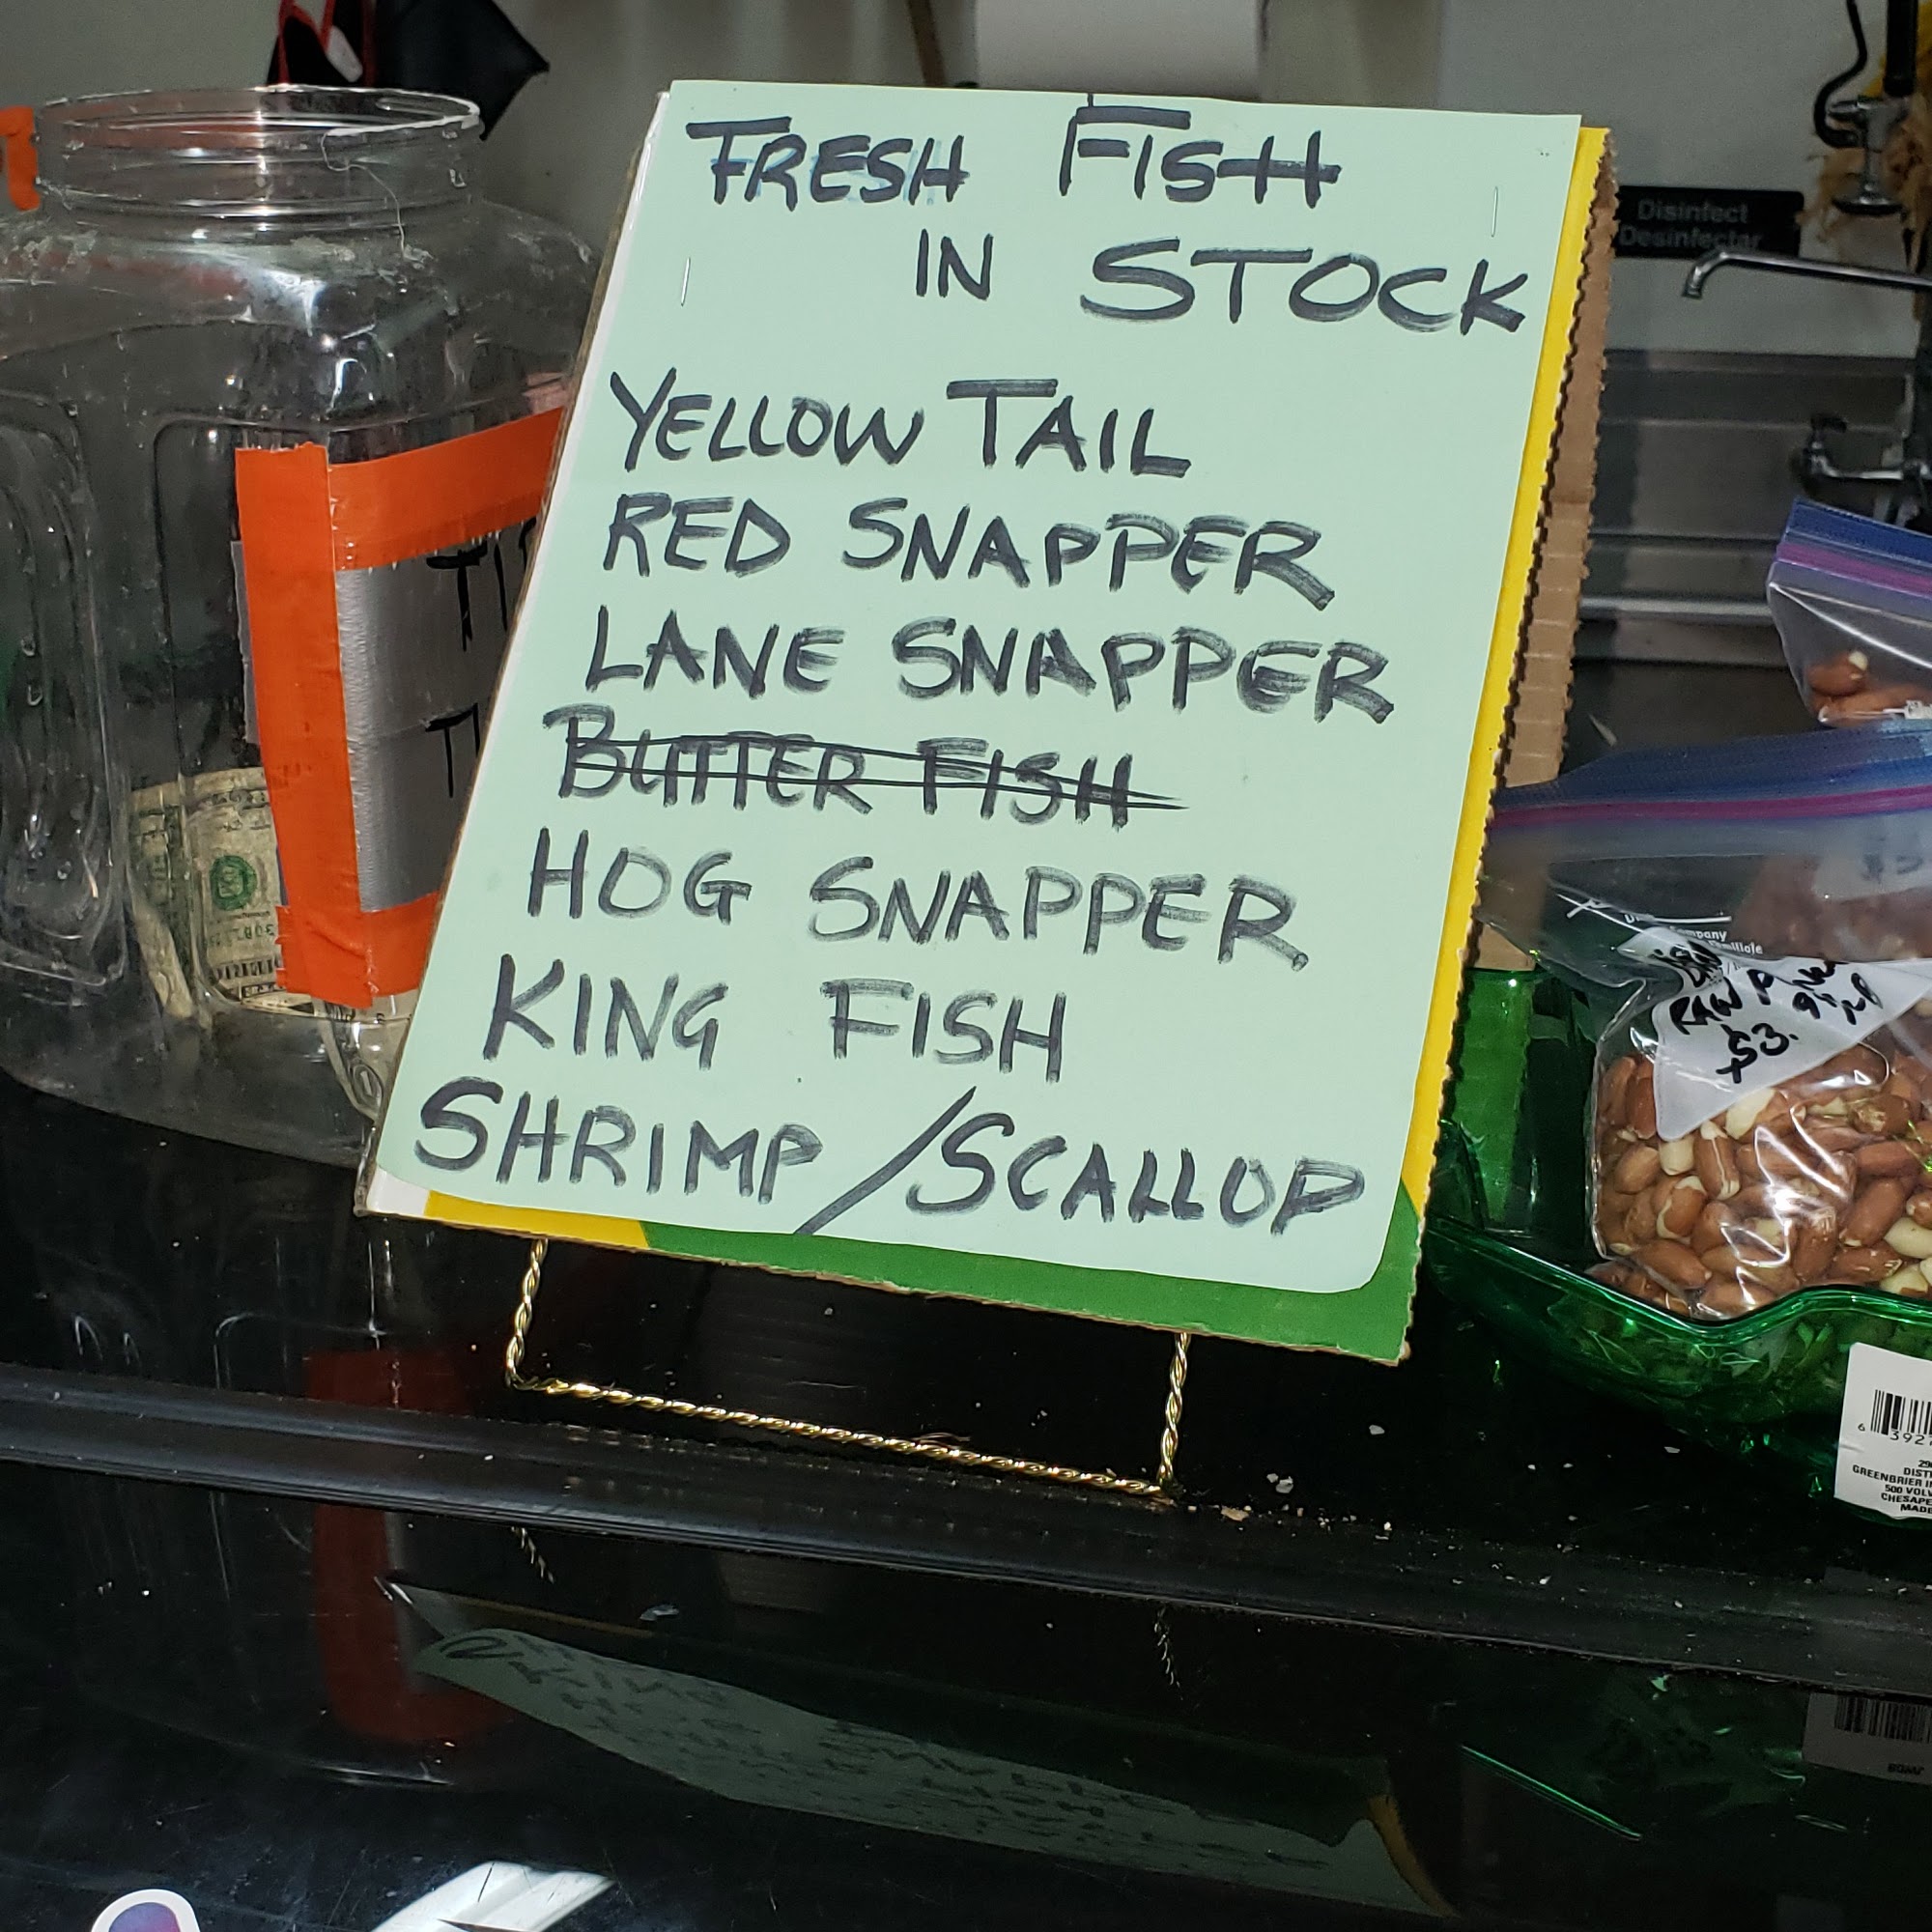 FRESH FISH
IN STOCK
YELLOW TAIL
RED SNAPPER
LANE SNAPPER
BUTTER FISH
HOG SNAPPER
KING FISH
SHRIMP / SCALLOP
Disinfect
Desinfectar
TI
T
RAW
$3.
6 392
DIST
GREENBRIER
500 VOL
CHESAPE
MADE